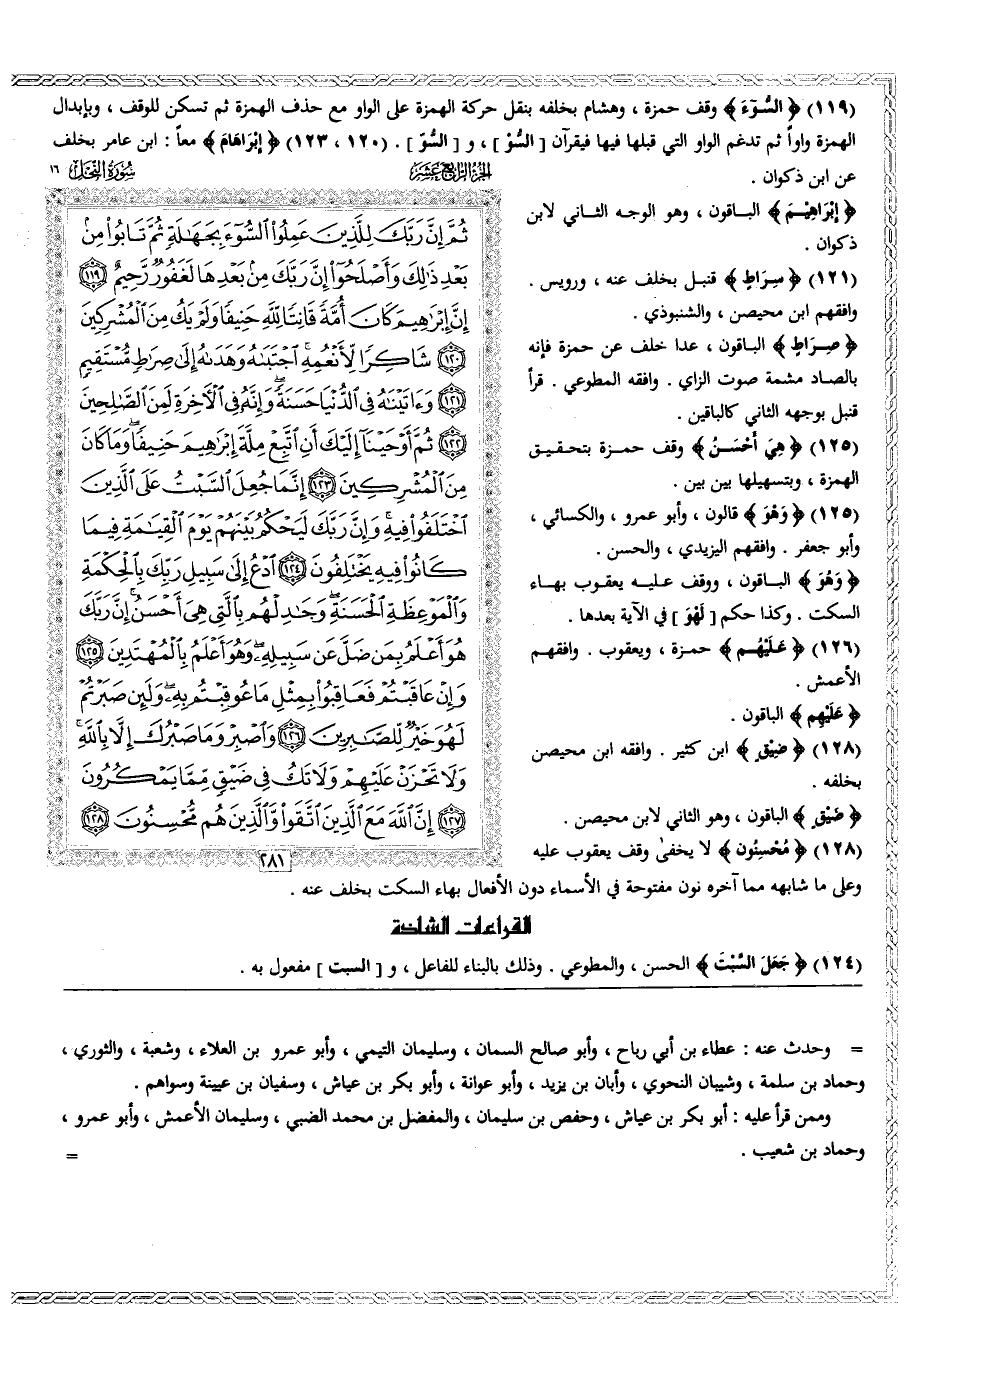 (١١٩) ﴿ السُّوٓءَ ﴾ وقف حمزة ، وهشام بخلفه بنقل حركة الهمزة على الواو مع حذف الهمزة ثم تسكن للوقف ، وبإبدال
الهمزة واواً ثم تدغم الواو التي قبلها فيها فيقرآن [ السُّوْ ] ، و [ السُّوّ ] . (١٢٠ ، ١٢٣) ﴿ إِبْرَاهَامَ ﴾ معاً : ابن عامر بخلف
عن ابن ذكوان .
﴿ إِبْرَاهِيْمَ ﴾ الباقون ، وهو الوجه الثاني لابن
ذكوان .
(١٢١) ﴿ سِرَاطٍ ﴾ قنبل بخلف عنه ، ورويس .
وافقهم ابن محيصن ، والشنبوذي .
﴿ صِرَاطٍ ﴾ الباقون ، عدا خلف عن حمزة فإنه
بالصاد مشمة صوت الزاي . وافقه المطوعي . قرأ
قنبل بوجهه الثاني كالباقين .
(١٢٥) ﴿ هِيَ أَحْسَنُ ﴾ وقف حمزة بتحقيق
الهمزة ، وبتسهيلها بين بين .
(١٢٥) ﴿ وَهْوَ ﴾ قالون ، وأبو عمرو ، والكسائي ،
وأبو جعفر . وافقهم اليزيدي ، والحسن .
﴿ وَهُوَ ﴾ الباقون ، ووقف عليه يعقوب بهاء
السكت . وكذا حكم [ لَهُوَ ] في الآية بعدها .
(١٢٦) ﴿ عَلَيْهُم ﴾ حمزة ، ويعقوب . وافقهم
الأعمش .
﴿ عَلَيْهِم ﴾ الباقون .
(١٢٨) ﴿ ضِيْقٍ ﴾ ابن كثير . وافقه ابن محيصن
بخلفه .
﴿ ضَيْقٍ ﴾ الباقون ، وهو الثاني لابن محيصن .
(١٢٨) ﴿ مُحْسِنُون ﴾ لا يخفىٰ وقف يعقوب عليه
وعلى ما شابهه مما آخره نون مفتوحة في الأسماء دون الأفعال بهاء السكت بخلف عنه .
الجزء الرابع عشر سورة النحل ١٦
ثُمَّ إِنَّ رَبَّكَ لِلَّذِينَ عَمِلُوا۟ ٱلسُّوٓءَ بِجَهَٰلَةٍ ثُمَّ تَابُوا۟ مِنۢ
بَعْدِ ذَٰلِكَ وَأَصْلَحُوٓا۟ إِنَّ رَبَّكَ مِنۢ بَعْدِهَا لَغَفُورٌ رَّحِيمٌ ١١٩
إِنَّ إِبْرَٰهِيمَ كَانَ أُمَّةً قَانِتًا لِّلَّهِ حَنِيفًا وَلَمْ يَكُ مِنَ ٱلْمُشْرِكِينَ
١٢٠ شَاكِرًا لِّأَنْعُمِهِ ۚ ٱجْتَبَىٰهُ وَهَدَىٰهُ إِلَىٰ صِرَٰطٍ مُّسْتَقِيمٍ
١٢١ وَءَاتَيْنَٰهُ فِى ٱلدُّنْيَا حَسَنَةً ۖ وَإِنَّهُۥ فِى ٱلْءَاخِرَةِ لَمِنَ ٱلصَّٰلِحِينَ
١٢٢ ثُمَّ أَوْحَيْنَآ إِلَيْكَ أَنِ ٱتَّبِعْ مِلَّةَ إِبْرَٰهِيمَ حَنِيفًا ۖ وَمَا كَانَ
مِنَ ٱلْمُشْرِكِينَ ١٢٣ إِنَّمَا جُعِلَ ٱلسَّبْتُ عَلَى ٱلَّذِينَ
ٱخْتَلَفُوا۟ فِيهِ ۚ وَإِنَّ رَبَّكَ لَيَحْكُمُ بَيْنَهُمْ يَوْمَ ٱلْقِيَٰمَةِ فِيمَا
كَانُوا۟ فِيهِ يَخْتَلِفُونَ ١٢٤ ٱدْعُ إِلَىٰ سَبِيلِ رَبِّكَ بِٱلْحِكْمَةِ
وَٱلْمَوْعِظَةِ ٱلْحَسَنَةِ ۖ وَجَٰدِلْهُم بِٱلَّتِى هِىَ أَحْسَنُ ۚ إِنَّ رَبَّكَ
هُوَ أَعْلَمُ بِمَن ضَلَّ عَن سَبِيلِهِۦ ۖ وَهُوَ أَعْلَمُ بِٱلْمُهْتَدِينَ ١٢٥
وَإِنْ عَاقَبْتُمْ فَعَاقِبُوا۟ بِمِثْلِ مَا عُوقِبْتُم بِهِۦ ۖ وَلَئِن صَبَرْتُمْ
لَهُوَ خَيْرٌ لِّلصَّٰبِرِينَ ١٢٦ وَٱصْبِرْ وَمَا صَبْرُكَ إِلَّا بِٱللَّهِ ۚ
وَلَا تَحْزَنْ عَلَيْهِمْ وَلَا تَكُ فِى ضَيْقٍ مِّمَّا يَمْكُرُونَ
١٢٧ إِنَّ ٱللَّهَ مَعَ ٱلَّذِينَ ٱتَّقَوا۟ وَّٱلَّذِينَ هُم مُّحْسِنُونَ ١٢٨
٢٨١
القراءات الشاذة
(١٢٤) ﴿ جَعَلَ السَّبْتَ ﴾ الحسن ، والمطوعي . وذلك بالبناء للفاعل ، و [ السبت ] مفعول به .
= وحدث عنه : عطاء بن أبي رباح ، وأبو صالح السمان ، وسليمان التيمي ، وأبو عمرو بن العلاء ، وشعبة ، والثوري ،
وحماد بن سلمة ، وشيبان النحوي ، وأبان بن يزيد ، وأبو عوانة ، وأبو بكر بن عياش ، وسفيان بن عيينة وسواهم .
وممن قرأ عليه : أبو بكر بن عياش ، وحفص بن سليمان ، والمفضل بن محمد الضبي ، وسليمان الأعمش ، وأبو عمرو ،
وحماد بن شعيب . =